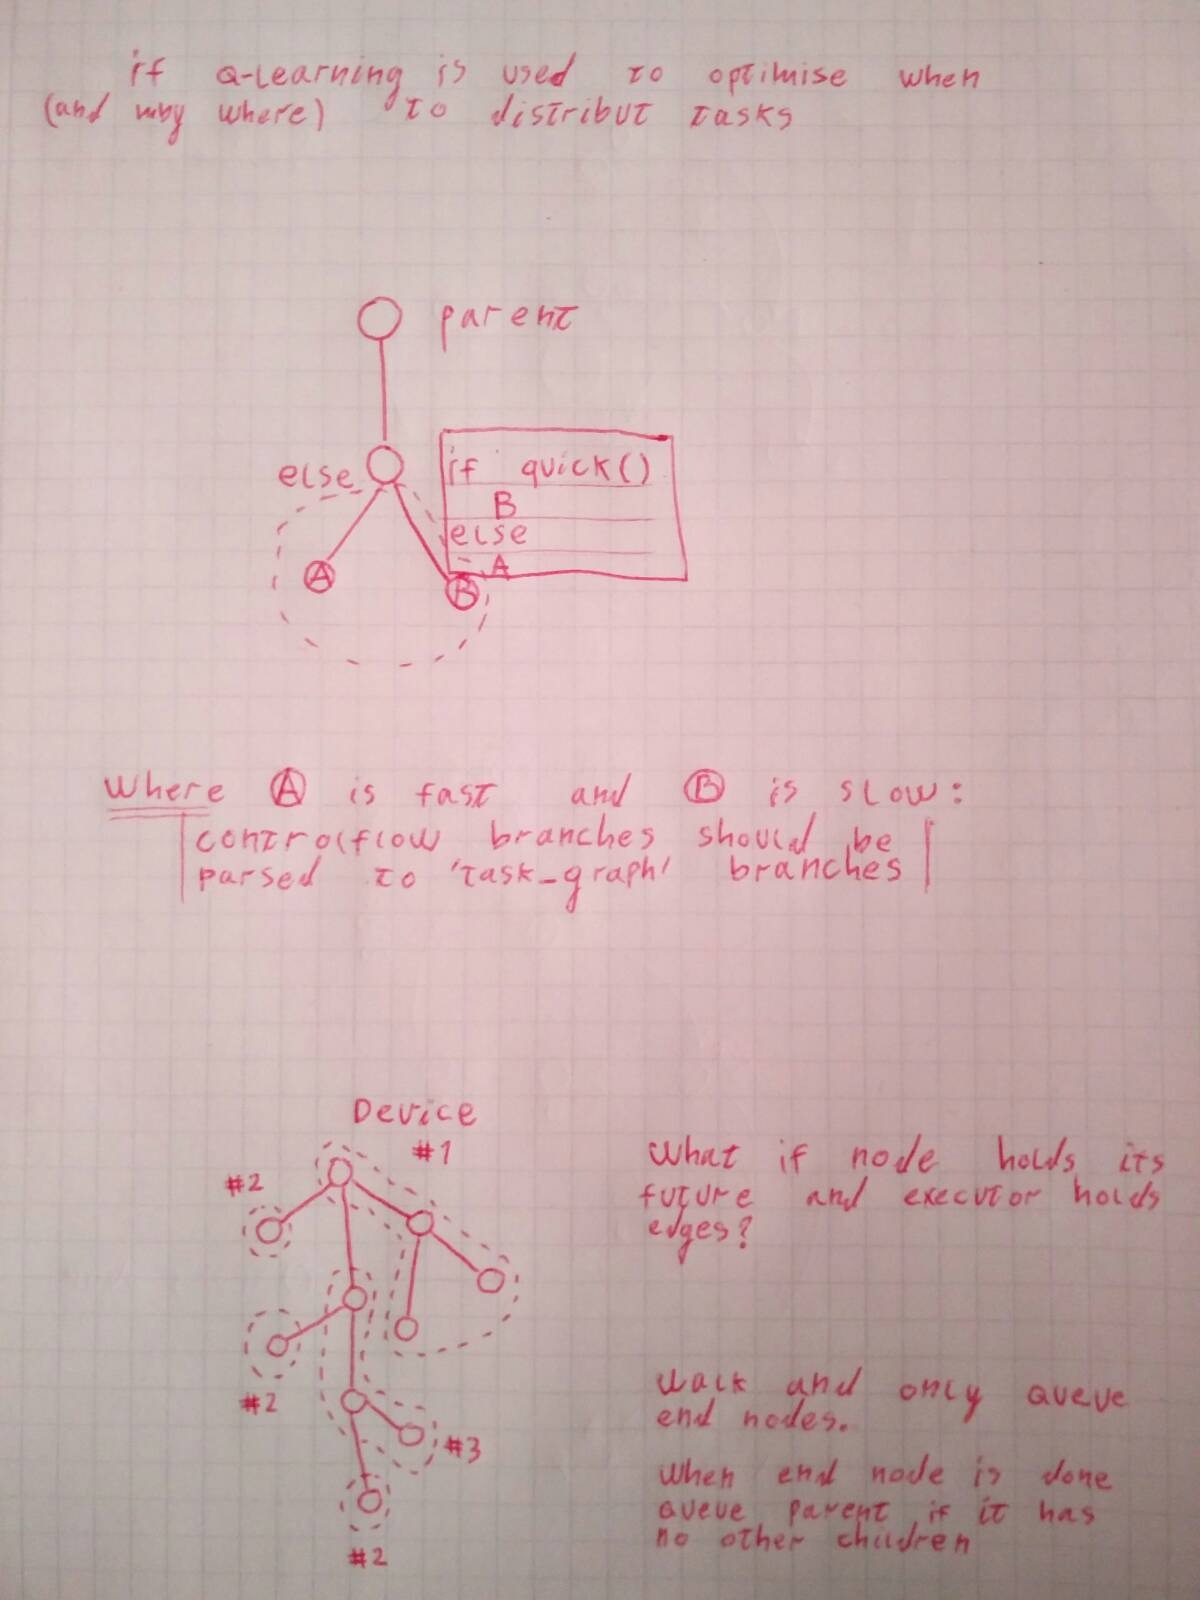 if Q-learning is used to optimise when
(and mby where) to distribut tasks
parent
else
if quick()
B
else
A
A
B
Where A is fast and B is slow:
controlflow branches should be
parsed to 'task_graph' branches
Device
#1
#2
#2
#3
#2
What if node holds its
future and executor holds
edges?
Walk and only queue
end nodes.
When end node is done
queue parent if it has
no other children